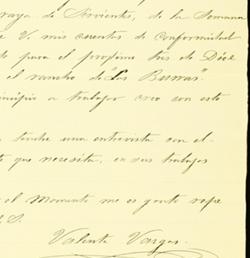 raya de Sirvientes, de la Semana
e V. mis asuntos de conformidad
do para el proximo tres de Dice
el rancho de "Las Burras"
incipio a trabajar creo son este
tendre una entrevista con el
to que necesita, en sus trabajos
el Momento me es grato repe
S.S.
Valente Vargas